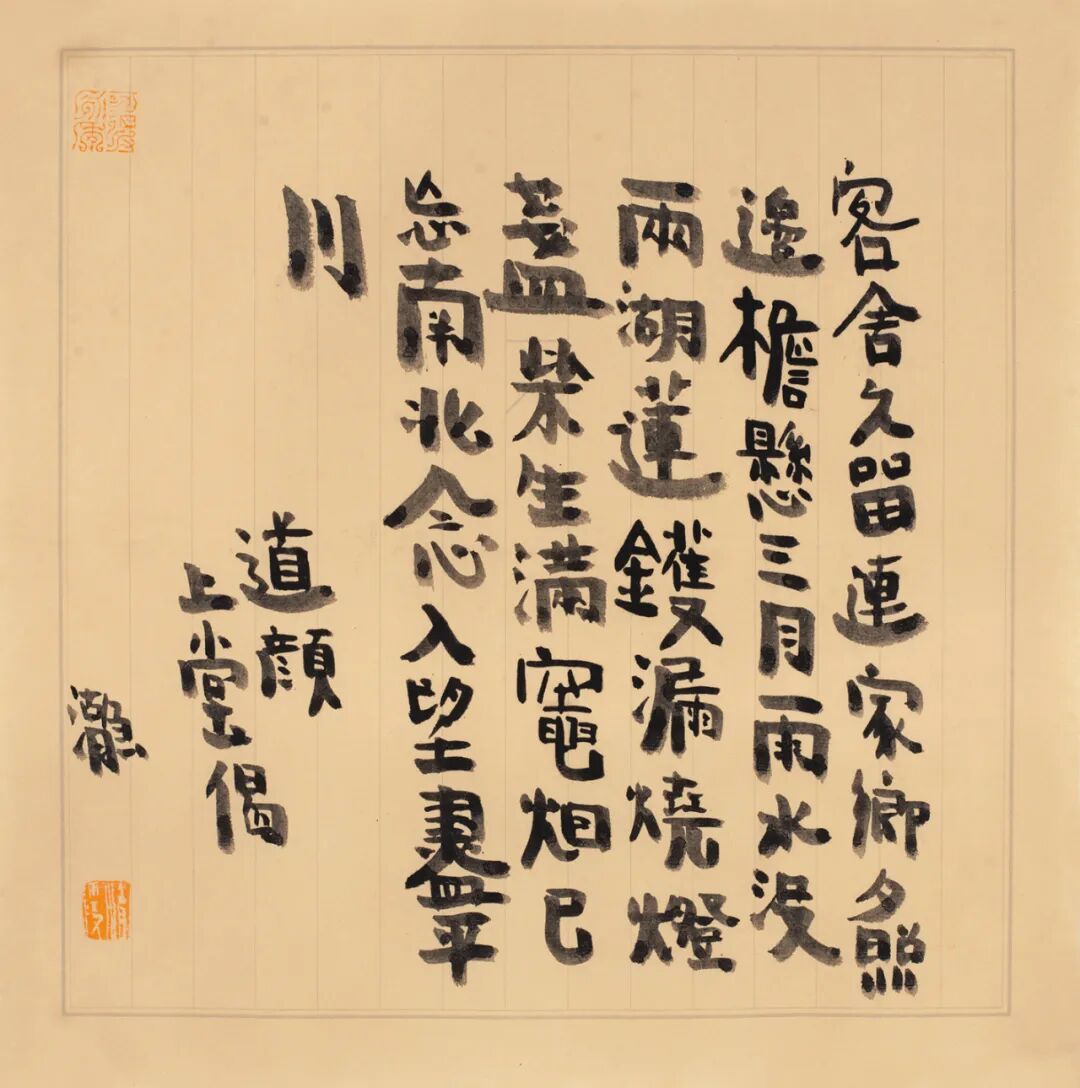 客舍久留連家鄉夕照
邊檐懸三月雨水沒
兩湖蓮鑊漏燒燈
盞柴生滿竈烟已
忘南北念入望盡平
川
道顏
上堂偈